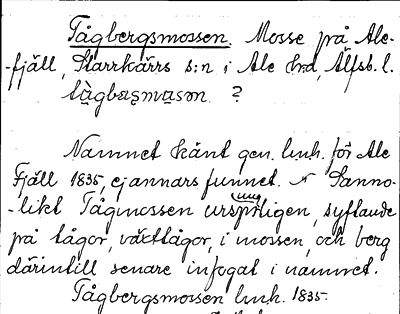 Tågbergsmossen. Mosse på Ale-
-fjäll, Starrkärrs s:n i Ale hrd, Älfsb. l.
tågbæsmåsen. ?
Namnet känt gen. lmh. för Ale
Fjäll 1835, ej annars funnet. Sanno-
-likt Tågmossen ursprungligen, syftande
på tågor, växttågor, i mossen, och berg
därintill senare infogat i namnet.
Tågbergsmossen lmh. 1835.